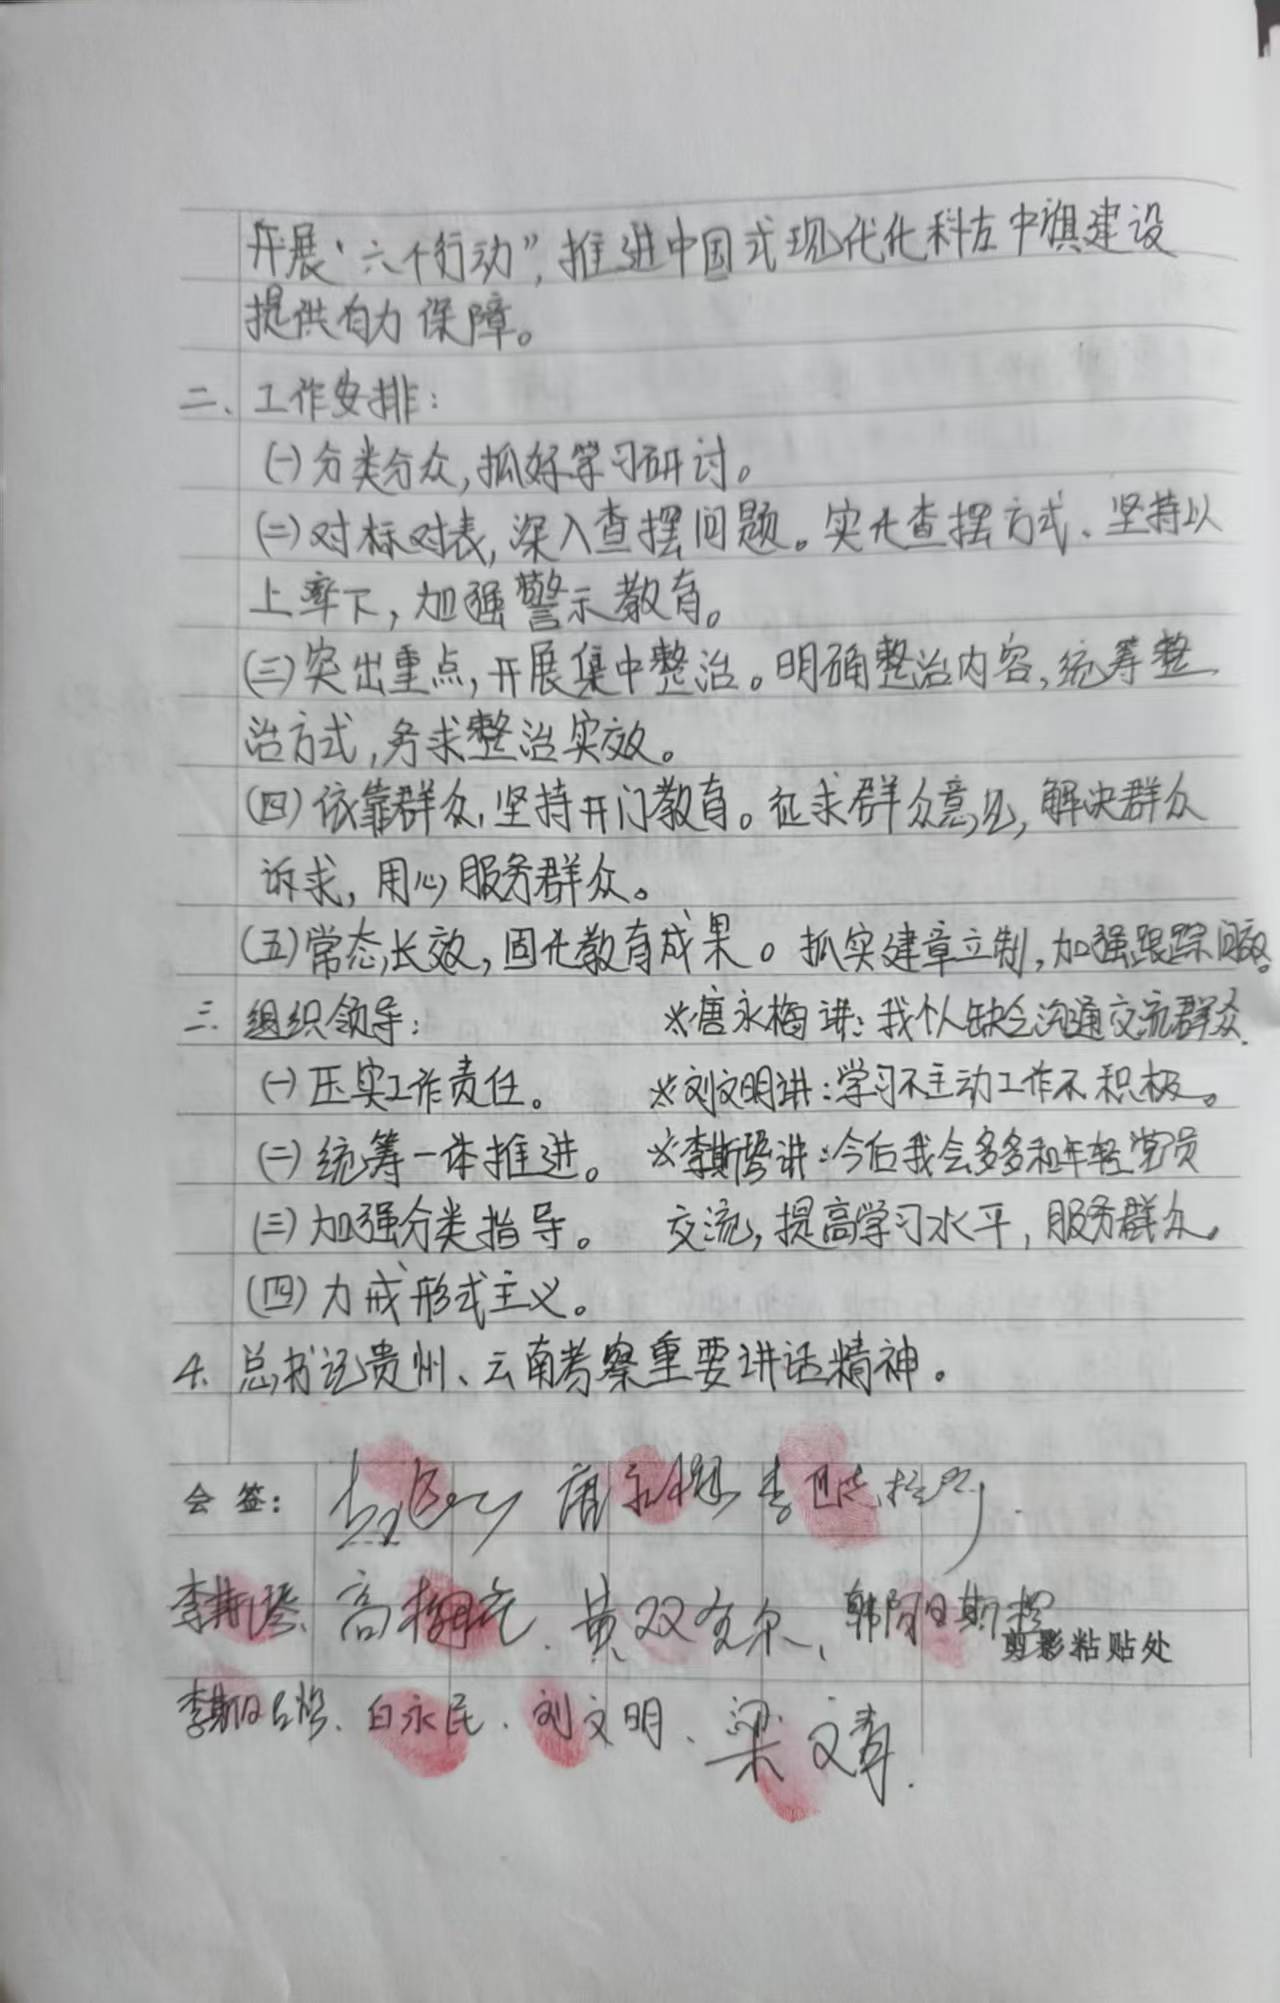 开展“六个行动”，推进中国式现代化科左中旗建设
提供有力保障。
二、工作安排：
(一)分类分众，抓好学习研讨。
(二)对标对表，深入查摆问题。实化查摆方式、坚持以
上率下，加强警示教育。
(三)突出重点，开展集中整治。明确整治内容，统筹整
治方式，务求整治实效。
(四)依靠群众，坚持开门教育。征求群众意见，解决群众
诉求，用心服务群众。
(五)常态长效，固化教育成果。抓实建章立制，加强跟踪问效。
三、组织领导：　※唐永梅讲：我个人缺乏沟通交流群众.
(一)压实工作责任。　※刘文明讲：学习不主动工作不积极。
(二)统筹一体推进。　※李斯琴讲：今后我会多多和年轻党员
(三)加强分类指导。　交流，提高学习水平，服务群众。
(四)力戒形式主义。
4. 总书记贵州、云南考察重要讲话精神。
会签：　唐永梅
李斯琴、高　黄双　韩阿日斯楞
剪影粘贴处
李斯日　、白永民、刘文明、梁文青.